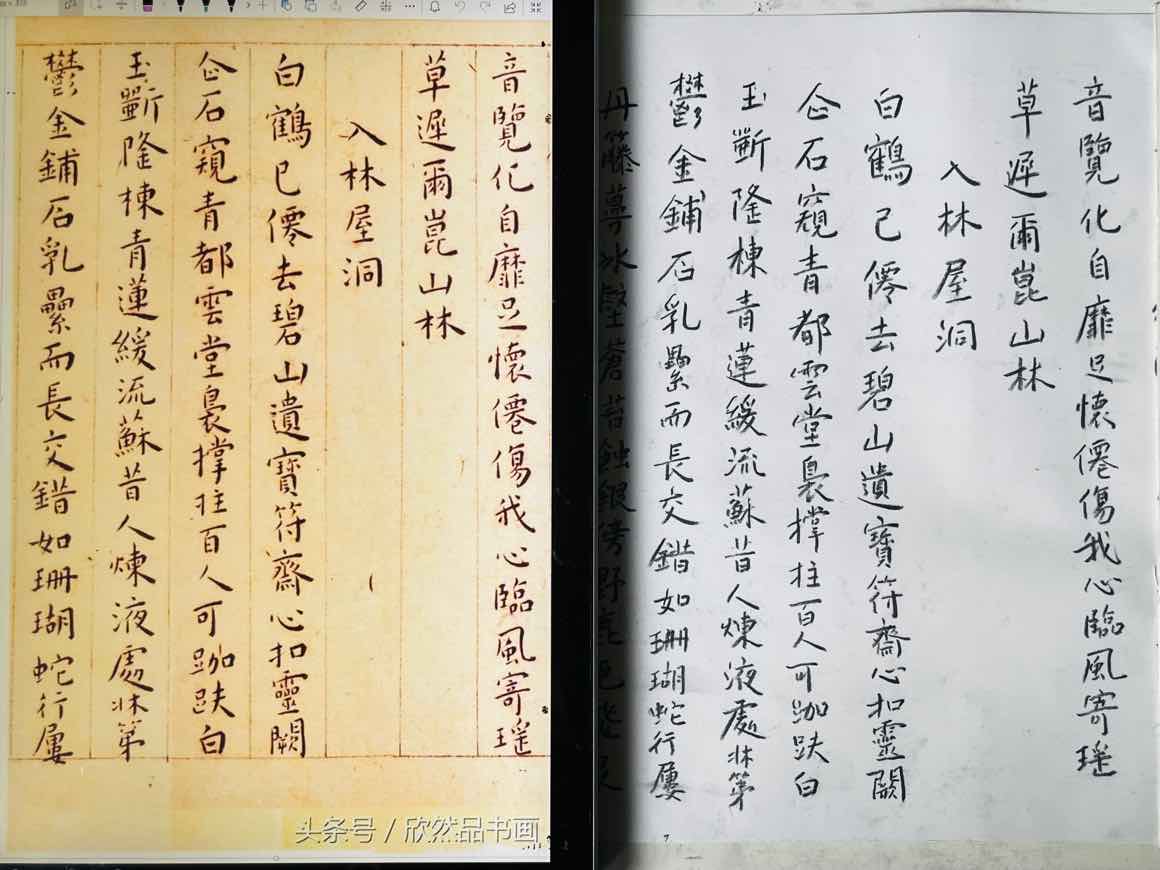 音覽化自靡足懷僊傷我心臨風寄瑶
草遲爾崑山林
入林屋洞
白鶴已僊去碧山遺寶符齋心扣靈闕
企石窺青都雲堂裊撑拄百人可跏趺白
玉斲隆棟青蓮緩流蘇昔人煉液處牀第
鬱金鋪石乳纍而長交錯如珊瑚蛇行屢
头条号 / 欣然品书画
音覽化自靡足懷僊傷我心臨風寄瑶
草遲爾崑山林
入林屋洞
白鶴已僊去碧山遺寶符齋心扣靈闕
企石窺青都雲堂裊撑拄百人可跏趺白
玉斲隆棟青蓮緩流蘇昔人煉液處牀第
鬱金鋪石乳纍而長交錯如珊瑚蛇行屢
丹藤蓴冰壑蒼苔蝕銀